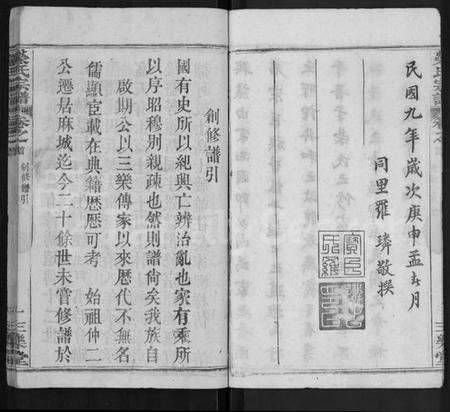 民國九年歲次庚申孟春月
同里羅璘敬撰
三樂堂
創修譜引
國有史所以紀興亡辨治亂也家有乘所
以序昭穆別親疏也然則譜尚矣我族自
啟期公以三樂傳家以來歷代不無名
儒顯宦載在典籍歷歷可考 始祖仲二
公遷居麻城迄今二十餘世未嘗修譜於
氏宗譜 卷之首 創修譜引 一 三樂堂